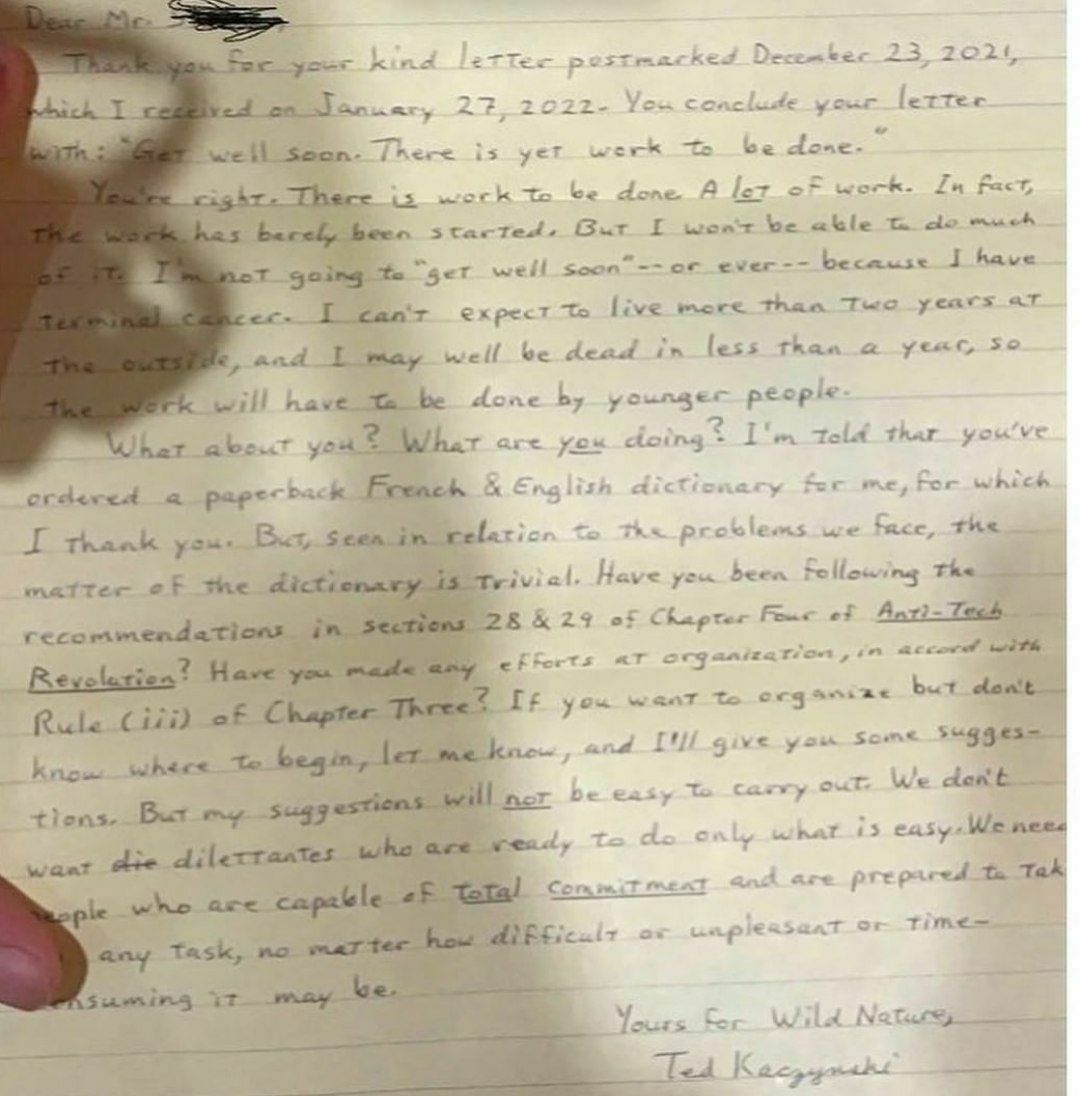 Dear Mr.
Thank you for your kind letter postmarked December 23, 2021,
which I received on January 27, 2022. You conclude your letter
with: "Get well soon. There is yet work to be done."
You're right. There is work to be done. A lot of work. In fact,
the work has barely been started. But I won't be able to do much
of it. I'm not going to "get well soon"--or ever--because I have
terminal cancer. I can't expect to live more than two years at
the outside, and I may well be dead in less than a year, so
the work will have to be done by younger people.
What about you? What are you doing? I'm told that you've
ordered a paperback French & English dictionary for me, for which
I thank you. But, seen in relation to the problems we face, the
matter of the dictionary is trivial. Have you been following the
recommendations in sections 28 & 29 of Chapter Four of Anti-Tech
Revolution? Have you made any efforts at organization, in accord with
Rule (iii) of Chapter Three? If you want to organize but don't
know where to begin, let me know, and I'll give you some sugges-
tions. But my suggestions will not be easy to carry out. We don't
want die dilettantes who are ready to do only what is easy. We need
people who are capable of total commitment and are prepared to tak
any task, no matter how difficult or unpleasant or time-
nsuming it may be.
Yours for Wild Nature,
Ted Kaczynski